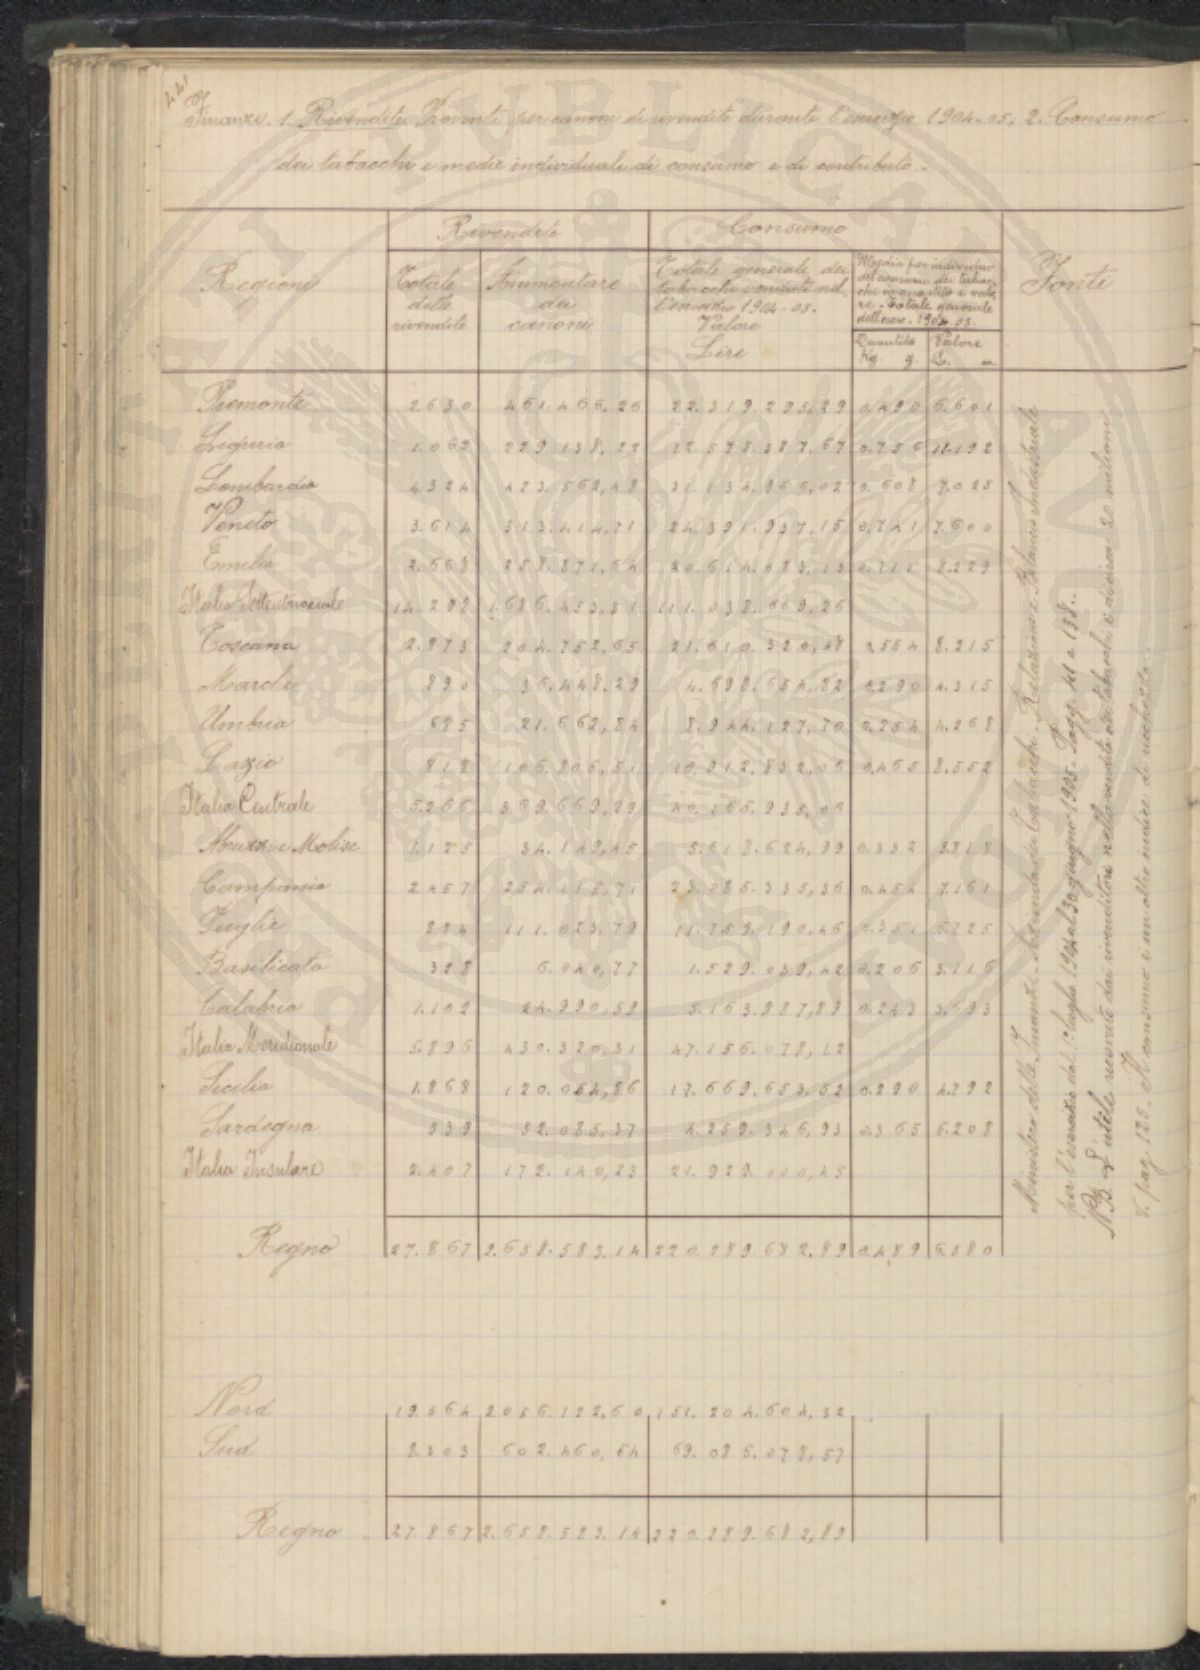 Finanze. 1. Rivendite. Proventi per canoni di rivendite durante l'esercizio 1904-05. 2. Consumo
dei tabacchi e medie individuali di consumo e di contributo.
Regioni Rivendite Consumo Fonti
Totale delle rivendite
Ammontare dei canoni
Totale generale dei tabacchi venduti nell'esercizio 1904-05. Valore Lire
Media per individuo del consumo dei tabacchi in quantità e valore. Totale generale dell'eser. 1904-05.
Quantità Kg g. Valore L.
Piemonte 2.630 461.466,26 22.319.295,29 0.490 6.601
Liguria 1.062 229.138,22 12.578.387,67 0.756 11.192
Lombardia 4.324 423.562,48 31.134.866,02 0.608 7.025
Veneto 3.614 313.414,71 24.391.937,15 0.741 7.600
Emilia 2.668 258.871,64 20.614.083,13 0.711 8.229
Italia Settentrionale 14.298 1.686.453,31 111.038.669,26
Toscana 2.873 204.752,65 21.610.320,48 8.215
Marche 890 36.448,29 4.698.654,82 0.290 4.315
Umbria 685 21.662,84 0.254 4.268
Lazio 818 106.806,51 10.912.832,06 0.465 8.552
Italia Centrale 5.266 369.669,29 40.166.935,06
Abruzzi e Molise 1.125 34.149,45 5.618.624,99 0.332 3.818
Campania 2.457 254.115,71 23.086.335,36 0.454 7.161
Puglie 884 111.023,79 11.759.190,46 0.351 5.725
Basilicata 328 6.040,77 1.529.039,42 0.206 3.116
Calabria 1.102 24.990,59 5.163.887,89 0.243 3.693
Italia Meridionale 5.896 430.320,31 47.156.078,12
Sicilia 1.868 120.054,86 17.669.653,52 0.290 4.792
Sardegna 539 52.085,37 4.259.346,93 0.365 5.208
Italia Insulare 2.407 172.140,23 21.929.000,45
Regno 27.867 2.658.583,14 220.289.682,89 0.489 6.580
Nord 19.564 2056.122,60 151.204.604,32
Sud 602.460,54 69.085.078,57
Regno 27.867 2.658.583,14 220.289.682,89
Ministero delle Finanze. Azienda dei Tabacchi. Relazione e Bilancio Industriale
per l'esercizio dal 1º luglio 1904 al 30 giugno 1905. Pagg. 41 e 138.
NB. L'utile netto dai rivenditori nella vendita dei tabacchi è di circa 20 milioni
V. pag. 125. Il consumo è un altro indice di ricchezza.